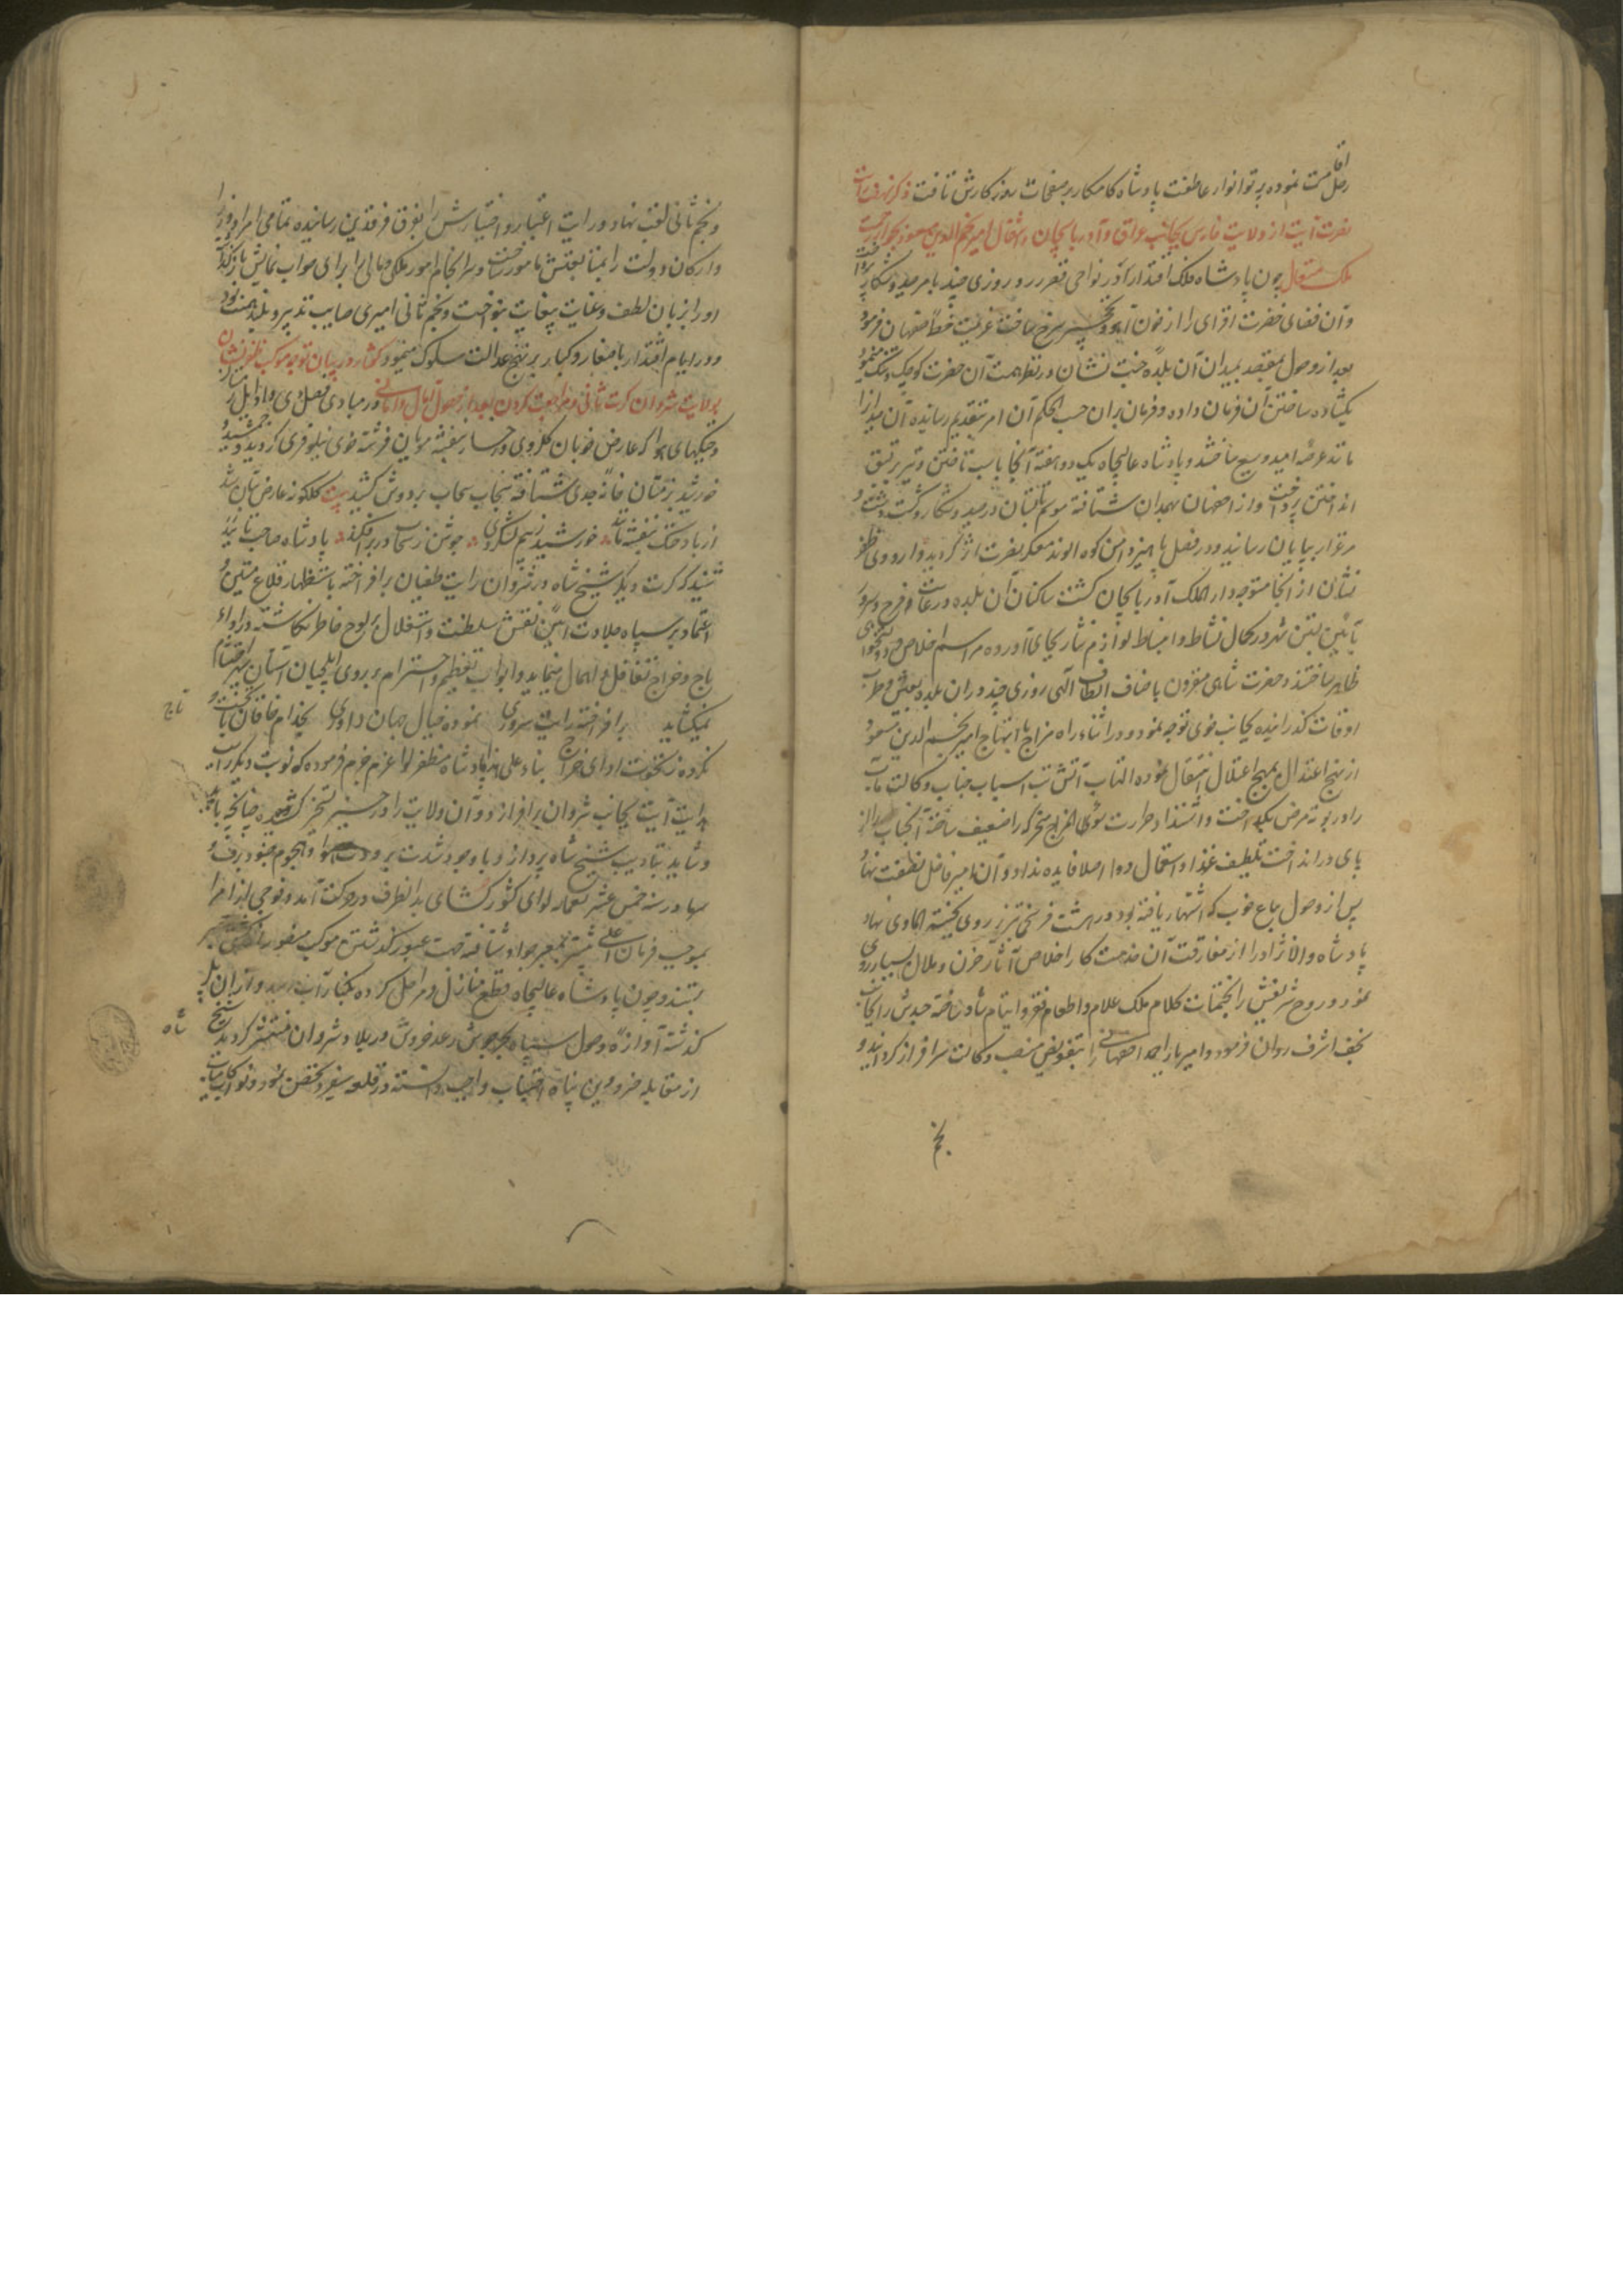 رحل اقامت نموده پرتو انوار عاطفت پادشاه کامکار بر صفحات روزکارش تافت ذکر نهضت رایات
نصرت آیت از ولایت فارس بجانب عراق و آذربایجان و انتقال امیر نجم الدین مسعود بجوار رحمت
ملک متعال چون پادشاه فلک اقتدار در نواحی قصر زرد روزی چند بامر صید و شکار پرداخت
و آن فضای خضرت افزای را از خون آهو و نخچیر سرخ ساخت عزیمت خطه اصفهان فرمود
بعد از وصول بمقصد میدان آن بلده جنت نشان در نظر همت آن حضرت کوچک و تنک نمود
بکشاده ساختن آن فرمان داده و فرمان بران حسب الحکم آن امر بتقدیم رسانیده آن میدان را
مانند عرصه امید وسیع ساختند و پادشاه عالیجاه یک دو هفته آنجا باسب تاختن و تیر بر قبق
انداختن پرداخت و از اصفهان بهمدان شتافته موسم تابستان در صید و شکار و کشت
مرغزار بپایان رسانید و در فصل پاییز دامن کوه الوند معسکر نصرت اثر کردید و اردوی ظفر
نشان از آنجا متوجه دار الملک آذربایجان کشت ساکنان آن بلده در غایت فرح و سرور
بآیین بستن شهر در کمال نشاط و انبساط لوازم نثار بجای آورده مراسم اخلاص و دولتخواهی
ظاهر ساختند و حضرت شاهی مقرون باصناف الطاف آلهی روزی چند دران بلده بعیش و طرب
اوقات کذرانیده بجانب خوی توجه نمود و در اثناء راه مزاج با ابتهاج امیر نجم الدین مسعود
از نهج اعتدال بمنهج اعتلال انتقال نموده التهاب آتش تب اسباب جناب وکالت مآب
را در بوته مرض بکداخت و اشتداد حرارت سؤ المزاج محرکه را ضعیف ساخته آنجناب را از
پای در انداخت تلطیف غذا و استعمال دوا اصلا فایده نداد و آن امیر فاضل
پس از وصول بباغ خوب که اشتهار یافته بود در هشت فرسخی تبریز روی بجنة الماوی نهاد
پادشاه والانژاد را از مفارقت آن خدمت کار اخلاص آثار حزن و ملال بسیار روی
نمود و روح شریفش را بختمات کلام ملک علام و اطعام فقرا و ایتام شاد ساخته جسدش را بجانب
نجف اشرف روان فرمود و امیر یار احمد اصفهانی را بتفویض منصب وکالت سرافراز کردانید و
نجم
و نجم ثانی لقب نهاد و رایت اعتبار و اختیارش را بفوق فرقدین رسانیده تمامی امرا و وزرا
و ارکان دولت را بمتابعتش مامور ساخت و سرانجام امور ملکی و مالی را برای صواب نمایش باز کذاشت
او را بزبان لطف و عنایت بیغایت بنواخت و نجم ثانی امیری صایب تدبیر و بلند همت بود
و در ایام اقتدار با صغار و کبار بر نهج عدالت سلوک مینمود کفتار در بیان توجه موکب ظفر نشان
بولایت شروان کرت ثانی و مراجعت کردن بعد از حصول آمال و امانی در مبادی فصل دی و اوایل
هوا که عارض خوبان کلروی و رخسار بنفشه مویان فرشته خوی نیلوفری کردید و جمشید
خورشید بزمستان خانه جدی شتافته سنجاب سحاب بر دوش کشید بیت کلکونه عارض بتان شد
از باد خنک بنفشه تاب خورشید ز بیم لشکر دی جوشن ز سحاب در بر افکند پادشاه صاحب تایید
شنید که کرت دیکر شیخ شاه در شروان رایت طغیان بر افراخته باستظهار قلاع متین و
اعتماد بر سپاه جلادت آیین نقش سلطنت و استقلال بر لوح خاطر نکاشته و در اداء
باج و خراج تغافل و اهمال مینماید و ابواب تعظیم و احترام بر روی ایلچیان آستان سپهر احتشام
نمیکشاید بر افراخته رایت سروری نموده خیال جهان داوری بخدام خاقان با
نکرده ز نخوت ادای خراج بناء علی هذا پادشاه مظفر لوا عزم جزم فرموده که نوبت دیکر رایت
هدایت آیت بجانب شروان بر افرازد و آن ولایت را در حیز تسخیر کشیده چنانچه باید
و شاید بتادیب شیخ شاه پردازد و با وجود شدت برودت هوا و هجوم جنود برف و
سرما در سنه خمس عشر تسعمائه لوای کشور کشای بدانطرف در حرکت آمد و فوجی از امرا
بموجب فرمان اعلی پیشتر بمعبر جواد شتافته جهت عبور کذشتن موکب منصور
بستند و چون پادشاه عالیجاه قطع منازل و مراحل کرده بکنار آب رسید و از آن پل
کذشته آوازه وصول سپاه بحر جوش رعد خروش در بلاد شروان منتشر کردید شیخ
از مقابله خسرو دین پناه اجتناب واجب دانسته در قلعه بیغرد تحصن نمود و نواب کامیاب
تاج
شاه